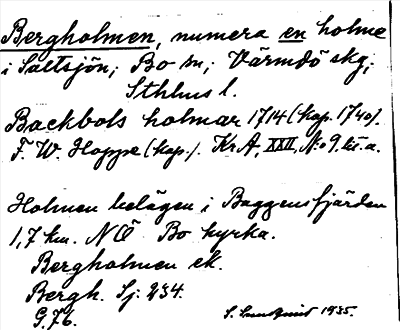 Bergholmen, numera en holme
i Saltsjön; Bo sn; Värmdö skg;
Sthlms l.
Backbols holmar 1714 (kop. 1740).
F. W. Hoppe (kop.). Kr.A, XXII, N:o 9. lit. a.
Holmen belägen i Baggensfjärden
1,7 km. NÖ Bo kyrka.
Bergholmen ek.
Bergh. Sj: 234.
G. 76.
S. Lundquist 1935.